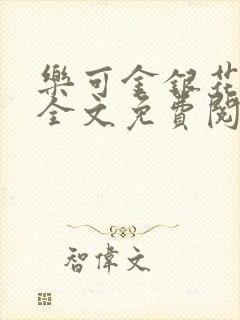 樂可金銀花
全文免費閱
智偉文